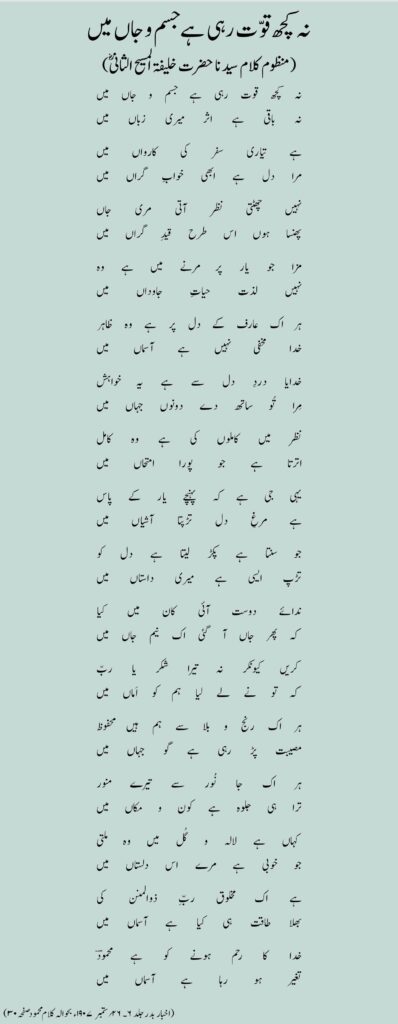 نہ کچھ قوّت رہی ہے جسم و جاں میں
(منظوم کلام سیدنا حضرت خلیفۃ المسیح الثانیؓ)
نہ کچھ قوت رہی ہے جسم و جاں میں
نہ باقی ہے اثر میری زباں میں
ہے تیاری سفر کی کارواں میں
مرا دل ہے ابھی خوابِ گراں میں
نہیں چھٹتی نظر آتی مری جاں
پھنسا ہوں اس طرح قیدِ گراں میں
مزا جو یار پر مرنے میں ہے وہ
نہیں لذت حیاتِ جاوداں میں
ہر اک عارف کے دل پر ہے وہ ظاہر
خدا مخفی نہیں ہے آسماں میں
خدایا دردِ دل سے ہے یہ خواہش
مرا تُو ساتھ دے دونوں جہاں میں
نظر میں کاملوں کی ہے وہ کامل
اترتا ہے جو پورا امتحاں میں
یہی جی ہے کہ پہنچے یار کے پاس
ہے مرغِ دل تڑپتا آشیاں میں
جو سنتا ہے پکڑ لیتا ہے دل کو
تڑپ ایسی ہے میری داستاں میں
ندائے دوست آئی کان میں کیا
کہ پھر جاں آ گئی اک نیم جاں میں
کریں کیونکر نہ تیرا شکر یا ربّ
کہ تو نے لے لیا ہم کو اَماں میں
ہر اک رنج و بلا سے ہم ہیں محفوظ
مصیبت پڑ رہی ہے گو جہاں میں
ہر اک جا نُور سے تیرے منور
ترا ہی جلوہ ہے کون و مکاں میں
کہاں ہے لالہ و گُل میں وہ ملتی
جو خوبی ہے مرے اس دلستاں میں
ہے اک مخلوق ربّ ذوالمنن کی
بھلا طاقت ہی کیا ہے آسماں میں
خدا کا رحم ہونے کو ہے محمودؔ
تغیر ہو رہا ہے آسماں میں
(اخبار بدر جلد ۶۔ ۲۶؍ستمبر ۱۹۰۷ء بحوالہ کلام محمود صفحہ ۳۰)